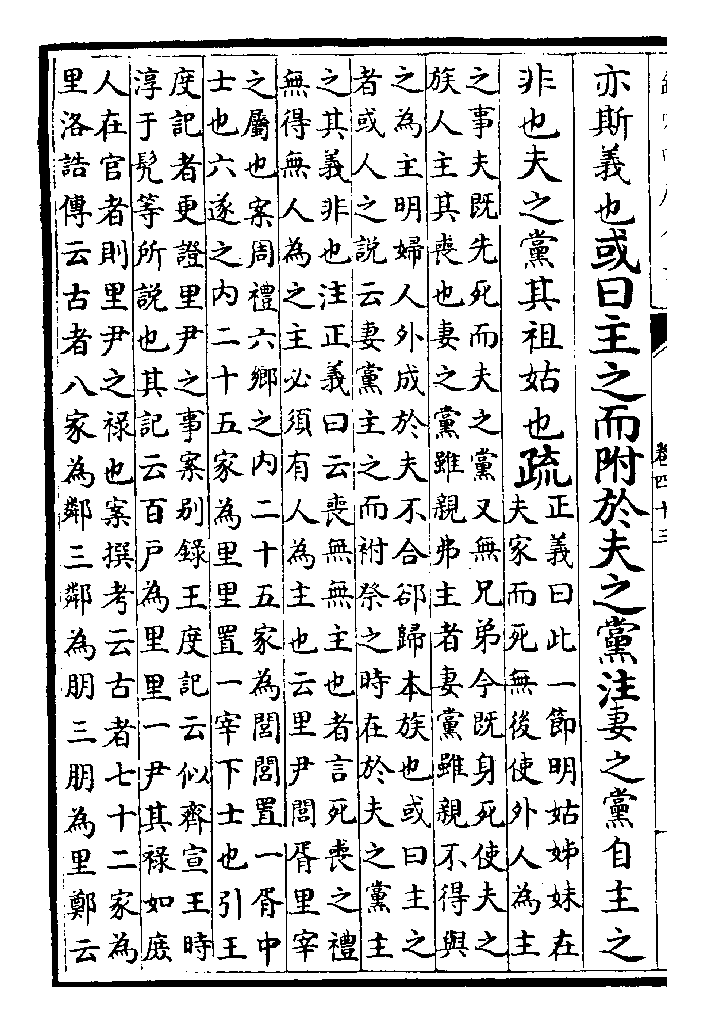 卷四十三
亦斯義也或曰主之而附於夫之黨注妻之黨自主之
非也夫之黨其祖姑也疏
正義曰此一節明姑姊妹在
夫家而死無後使外人為主
之事夫既先死而夫之黨又無兄弟今既身死使夫之
族人主其喪也妻之黨雖親弗主者妻黨雖親不得與
之為主明婦人外成於夫不合郤歸本族也或曰主之
者或人之說云妻黨主之而祔祭之時在於夫之黨主
之其義非也注正義曰云喪無無主也者言死喪之禮
無得無人為之主必須有人為主也云里尹閭胥里宰
之屬也案周禮六鄉之内二十五家為閭閭置一胥中
士也六遂之内二十五家為里里置一宰下士也引王
度記者更證里尹之事案别録王度記云似齊宣王時
淳于髠等所說也其記云百戸為里里一尹其祿如庶
人在官者則里尹之祿也案撰考云古者七十二家為
里洛誥傳云古者八家為鄰三鄰為朋三朋為里鄭云